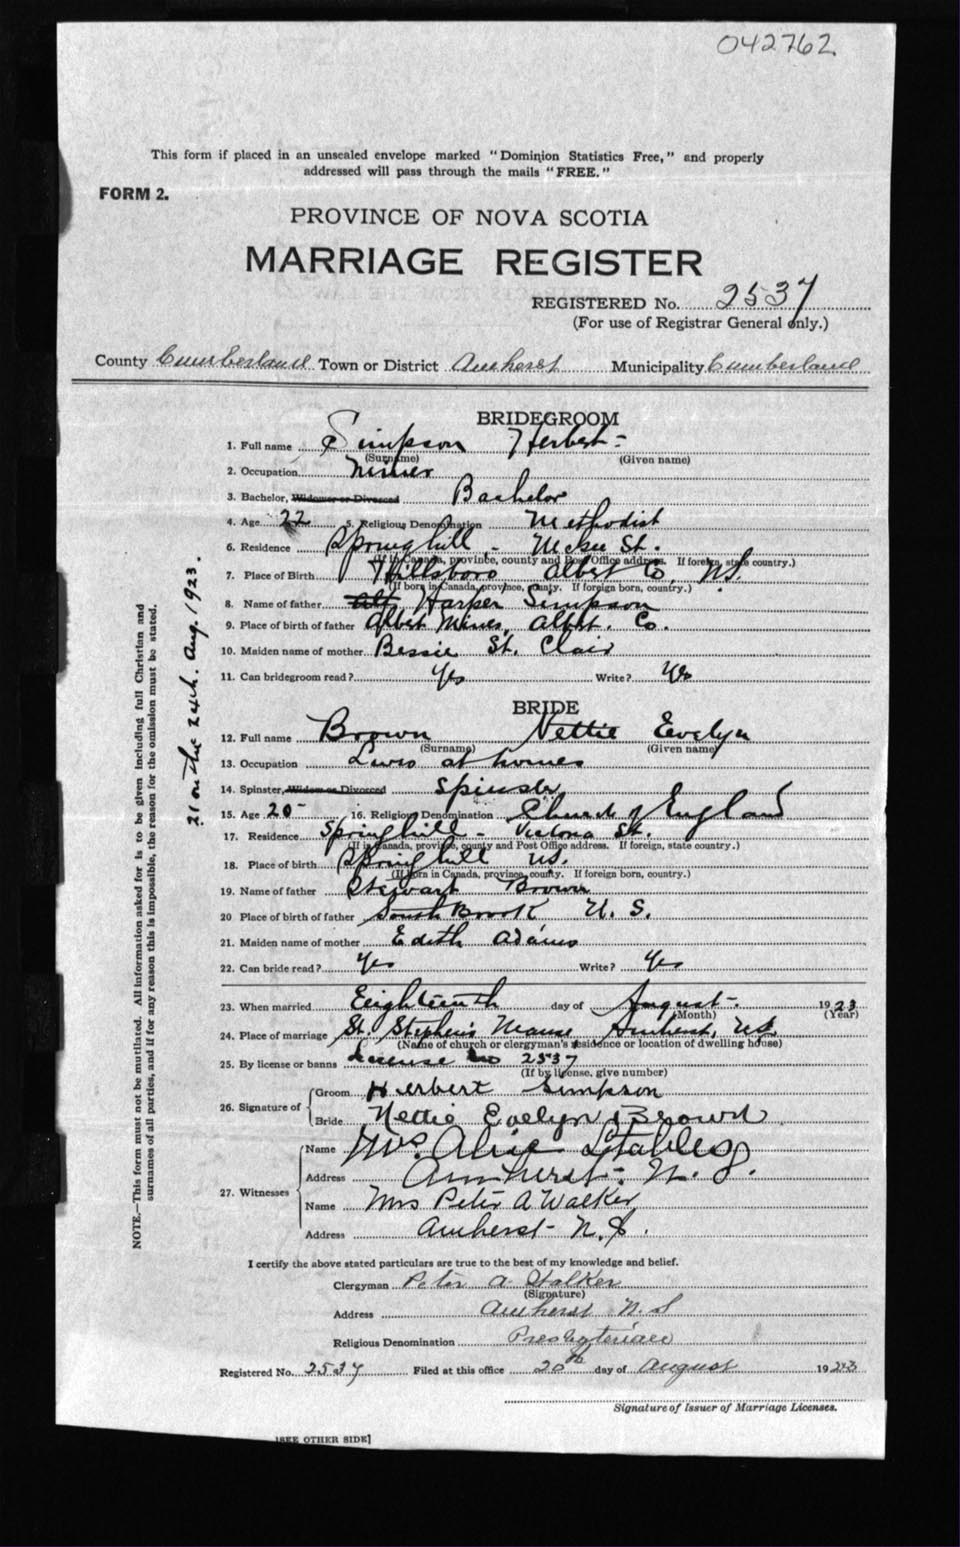 042762
This form if placed in an unsealed envelope marked "Dominion Statistics Free," and properly
addressed will pass through the mails "FREE."
FORM 2.
PROVINCE OF NOVA SCOTIA
MARRIAGE REGISTER
REGISTERED No. 2537
(For use of Registrar General only.)
County Cumberland Town or District Amherst Municipality Cumberland
BRIDEGROOM
1. Full name Simpson Herbert
(Surname) (Given name)
2. Occupation Miner
3. Bachelor, Widower or Divorced Bachelor
4. Age 22 5. Religious Denomination Methodist
6. Residence Springhill - McKee St.
(If in Canada, province, county and Post Office address. If foreign, state country.)
7. Place of Birth Hillsboro Albert Co, N.S.
(If born in Canada, province, county. If foreign born, country.)
8. Name of father Harper Simpson
9. Place of birth of father Albert Mines, Albert. Co.
10. Maiden name of mother Bessie St. Clair
11. Can bridegroom read? Yes Write? Yes
BRIDE
12. Full name Brown Nettie Evelyn
(Surname) (Given name)
13. Occupation Lives at home
14. Spinster, Widow or Divorced Spinster
15. Age 20 - 16. Religious Denomination Church of England
17. Residence Springhill - Victoria St.
(If in Canada, province, county and Post Office address. If foreign, state country.)
18. Place of birth Springhill N.S.
(If born in Canada, province, county. If foreign born, country.)
19. Name of father Stewart Brown
20 Place of birth of father South Brook N. S.
21. Maiden name of mother Edith Adams
22. Can bride read? Yes Write? Yes
23. When married Eighteenth day of August - 1923
(Month) (Year)
24. Place of marriage St. Stephen's Manse Amherst, N.S.
(Name of church or clergyman's residence or location of dwelling house)
25. By license or banns License No 2537
(If by license, give number)
26. Signature of Groom Herbert Simpson
Bride Nettie Evelyn Brown
27. Witnesses Name Mrs. Alice Stables
Address Amherst. N. S.
Name Mrs Peter A Walker
Address Amherst N.S.
I certify the above stated particulars are true to the best of my knowledge and belief.
Clergyman Peter A. Stalker
(Signature)
Address Amherst N. S
Religious Denomination Presbyterian
Registered No. 2537 Filed at this office 20th day of August 1923
Signature of Issuer of Marriage Licenses.
[SEE OTHER SIDE]
NOTE.—This form must not be mutilated. All information asked for is to be given including full Christian and
surnames of all parties, and if for any reason this is impossible, the reason for the omission must be stated.
21 on the 24th. Aug. 1923.